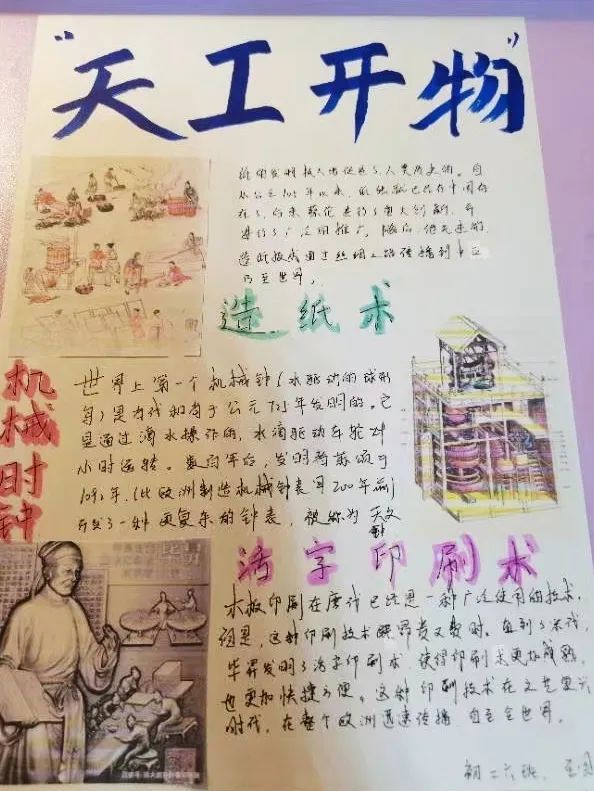 “天工开物”
纸的发明极大地促进了人类历史的。自
从公元105年以来,纸张就已在中国存
在了,后来蔡伦进行了重大创新,并
进行了广泛的推广。随后,他先进的
造纸技术通过丝绸之路传播到中亚
乃至世界。
造纸术
机械时钟
世界上第一个机械钟(水驱动的球形
)是唐代和尚于公元725年发明的。它
是通过滴水操作的,水滴驱动车轮24
小时运转。数百年后,发明苏颂于
1092年(比欧洲制造机械钟表早200年前)
开发了一种更复杂的钟表,被称为天文
钟
活字印刷术
木板印刷在唐代已经是一种广泛使用的技术,
但是,这种印刷技术既昂贵又费时。直到了宋代,
毕昇发明了活字印刷术,使得印刷更加简易,
也更加快捷方便。这种印刷技术在文艺复兴
时代,在整个欧洲迅速传播,直至全世界。
初二六班,